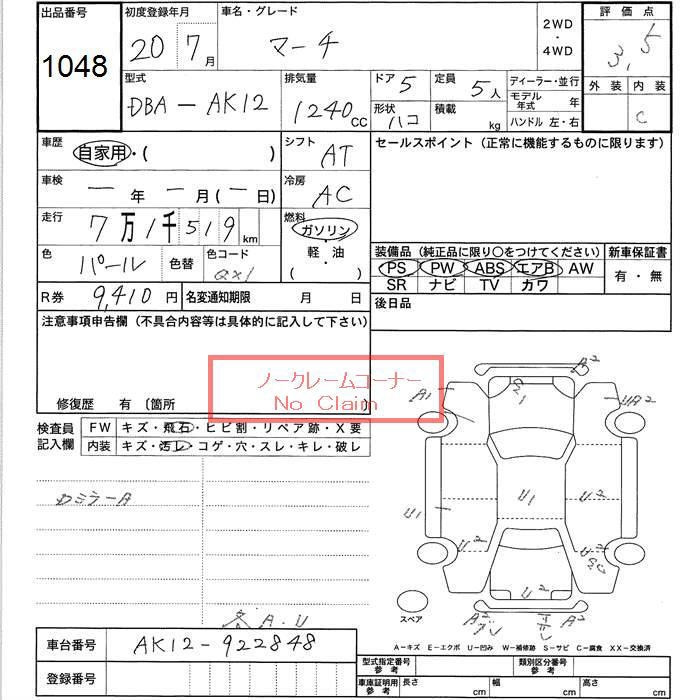 出品番号 初度登録年月 車名・グレード 評価点
1048 20 7月 マーチ 2WD・4WD 3.5
型式 排気量 ドア 5 定員 5人 ディーラー・並行 外装 内装
DBA-AK12 1240cc 形状 ハコ 積載 kg モデル年式 年 C
ハンドル 左・右
車歴 自家用・( ) シフト AT セールスポイント(正常に機能するものに限ります)
車検 一年 一月(一日) 冷房 AC
走行 7万1千519km 燃料 ガソリン・軽油・( )
色 パール 色替 色コード QX1
装備品(純正品に限り〇をつけてください) 新車保証書
PS PW ABS エアB AW 有・無
SR ナビ TV カワ
R券 9,410円 名変通知期限 月 日 後日品
注意事項申告欄(不具合内容等は具体的に記入して下さい)
ノークレームコーナー
No Claim
修復歴 有〔箇所
検査員記入欄 FW キズ・飛石・ヒビ割・リペア跡・X要
内装 キズ・汚レ・コゲ・穴・スレ・キレ・破レ
A2
A1
UA2
カミラーA
U1
U1
U2
U2
U2
A2
A2
スペア
A.U
A-キズ E-エクボ U-凹み W-補修跡 S-サビ C-腐食 XX-交換済
車台番号 AK12-922848
登録番号
型式指定番号 参考 類別区分番号 参考
車庫証明用 参考 長さ cm 幅 cm 高さ cm